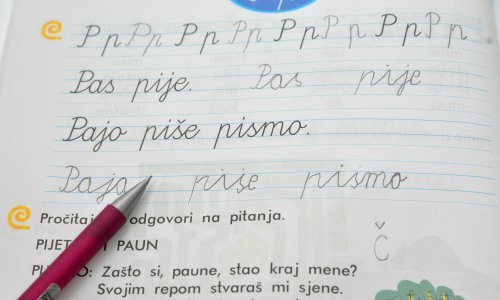 P p P p P p P p P p P p P p P p
Pas pije. Pas pije
Pajo piše pismo.
Pajo piše pismo
odgovori na pitanja.
PAUN
Č
Zašto si, paune, stao kraj mene?
Svojim repom stvaraš mi sjene.